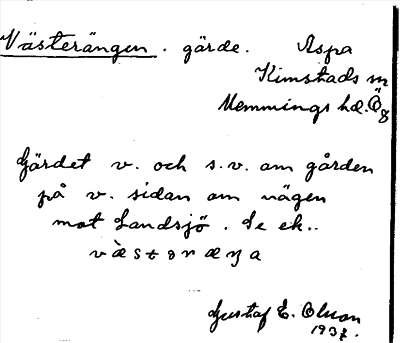 Västerängen. gärde. Aspa
Kimstads sn
Memmings hd. Ög
Gärdet v. och s.v. om gården
på v. sidan om vägen
mot Landsjö. Se ek..
væ̀stəræŋa
Gustaf E. Olson
1937.